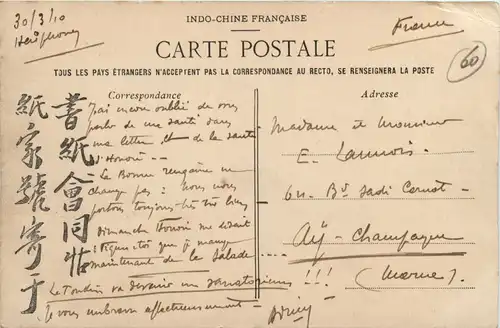 30/3/10
INDO-CHINE FRANÇAISE
France
CARTE POSTALE
60
TOUS LES PAYS ÉTRANGERS N'ACCEPTENT PAS LA CORRESPONDANCE AU RECTO, SE RENSEIGNER A LA POSTE
Correspondance
Adresse
書紙會同
紙家號寄于
J'ai encore oublié de vous
parler de ma santé dans
ma lettre et de la santé
d'Honoré --
La Bonne rengaine ne
change pas : Nous nous
portons toujours très très bien
Dimanche me disait
que j'y mange
maintenant de la salade ....
Le Tonkin va devenir un sanatorium !!!
Je vous embrasse affectueusement
Madame et Monsieur
E. Launois.
64. Bd Sadi Carnot -
Aÿ - Champagne
(Marne).